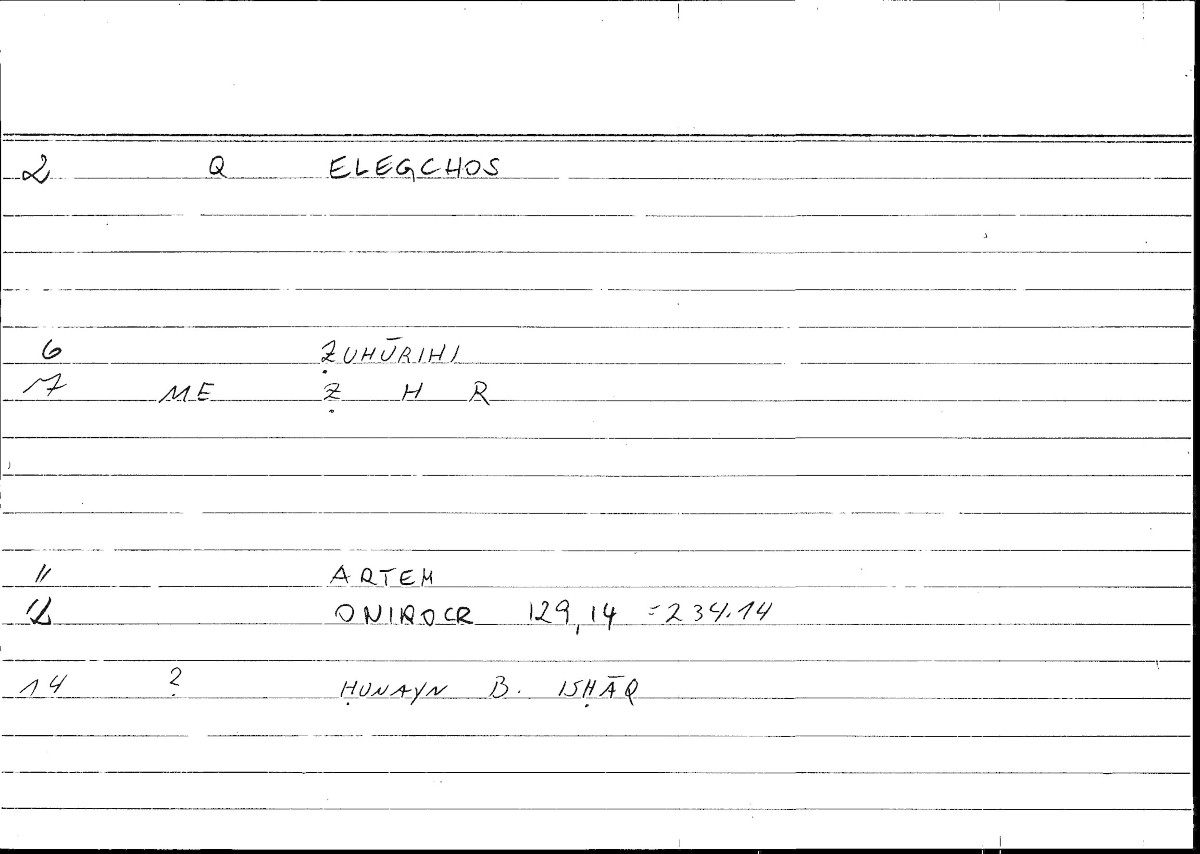 2 Q ELEGCHOS
6 ẒUHŪRIHI
7 ME Ẓ H R
11 ARTEM
12 ONIROCR 129,14 =234.14
14 ? ḤUNAYN B. ISḤĀQ